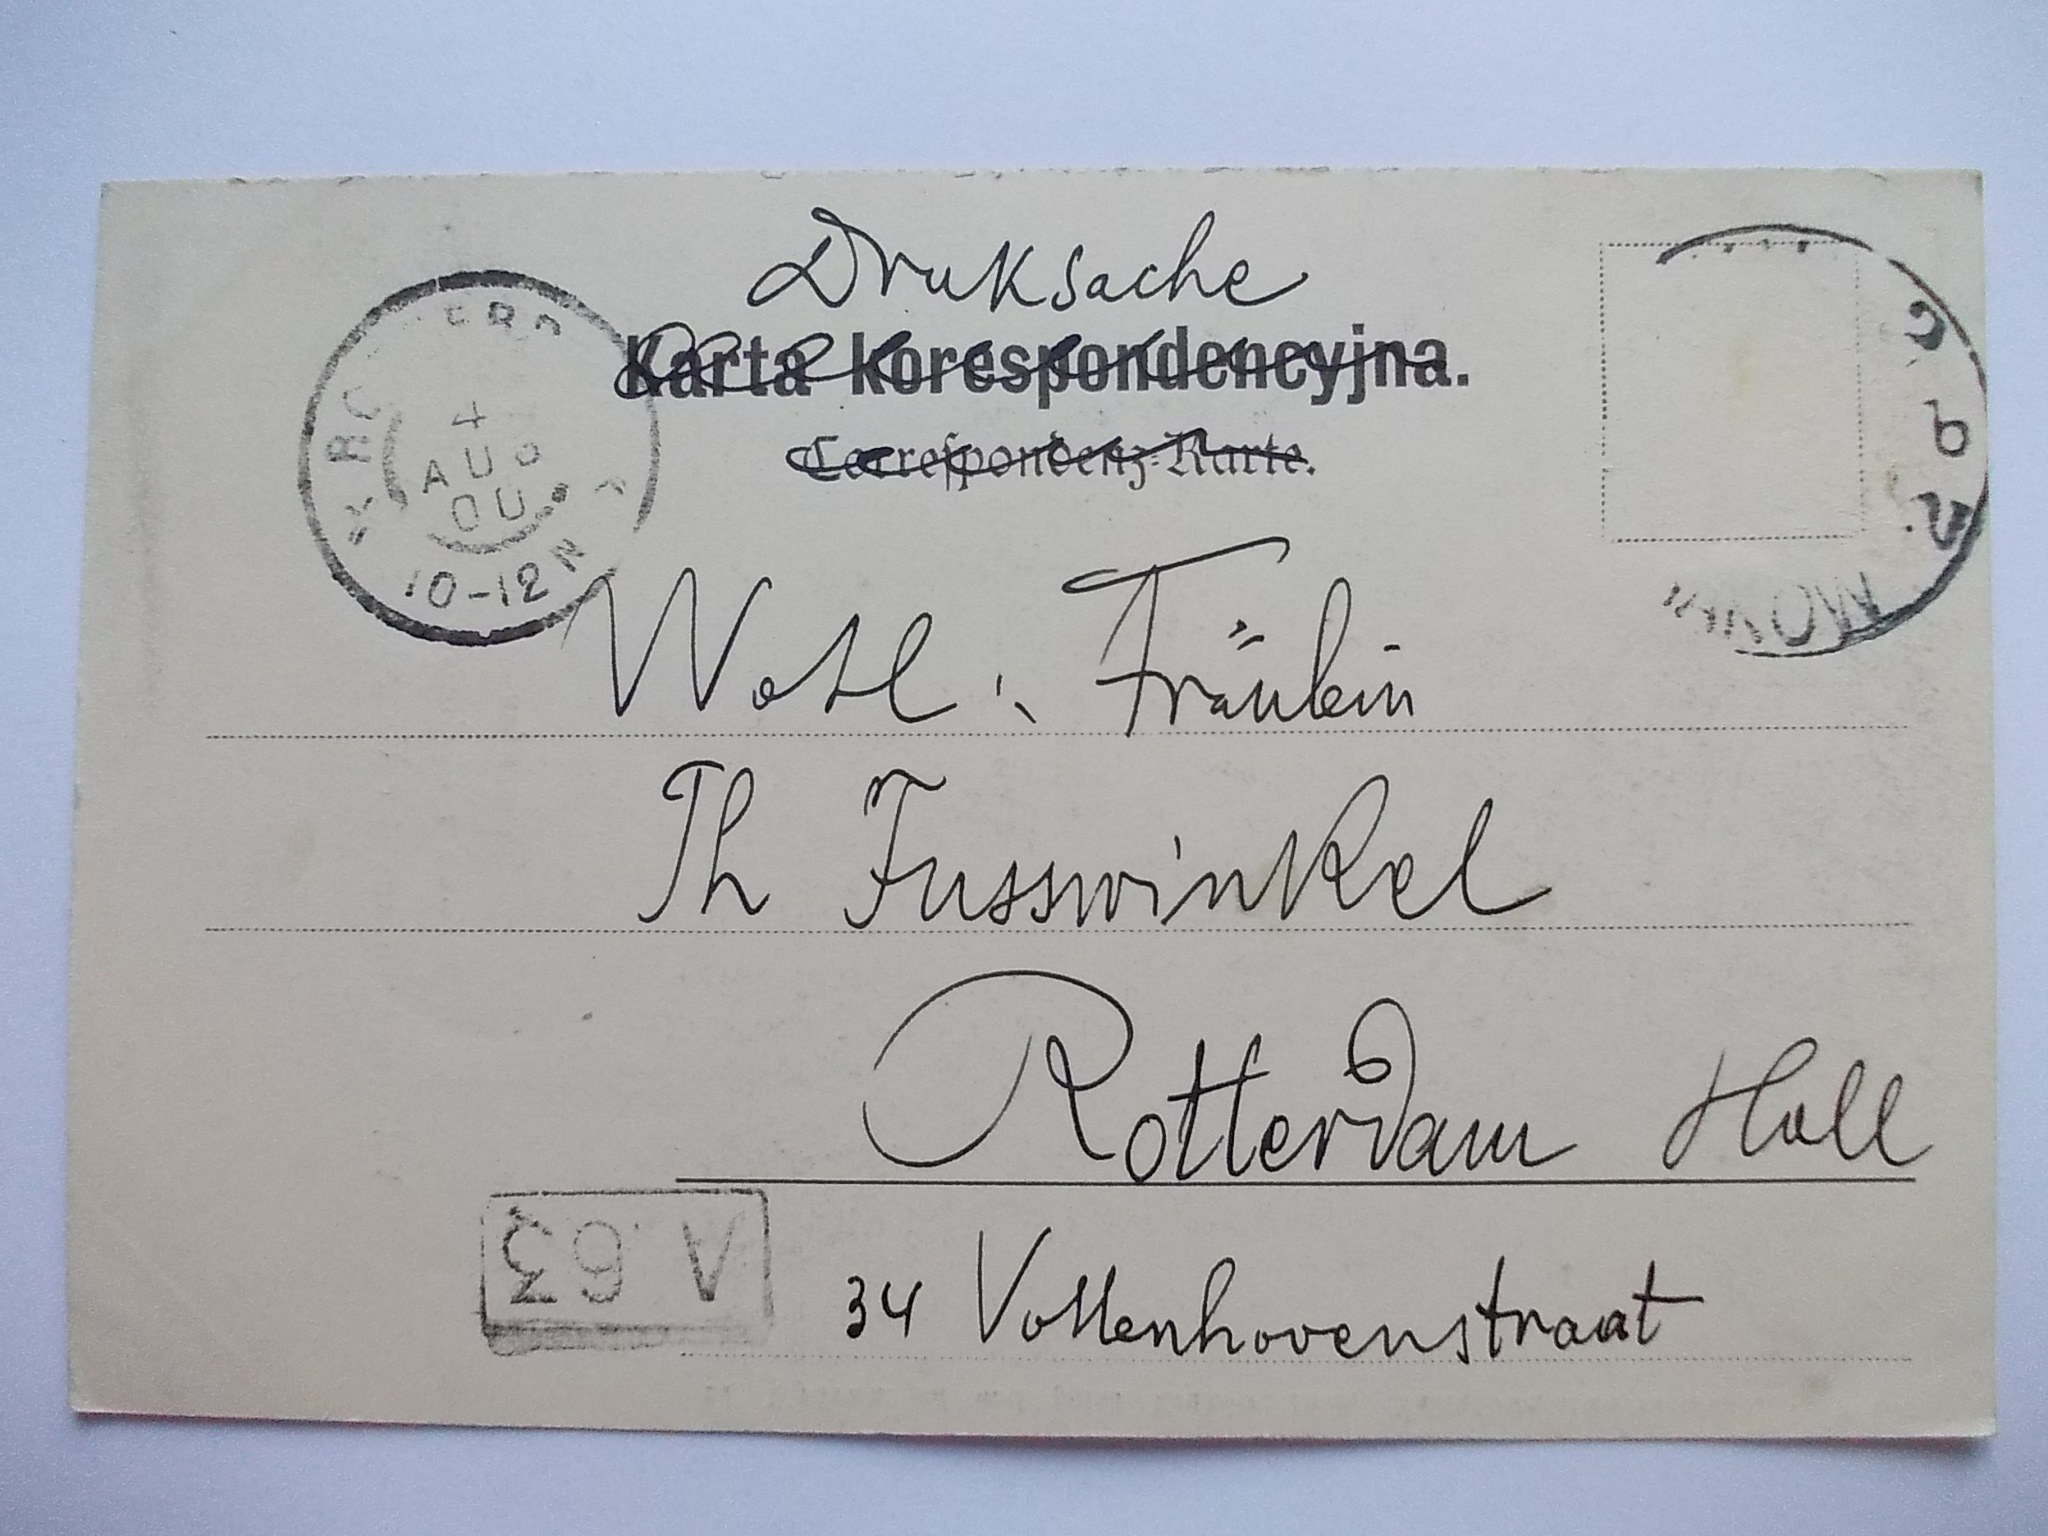 Druksache
Karta korespondencyjna.
Correspondenz-Karte.
4
AUG
00
10-12N
Fräulein
Th Fusswinkel
Rotterdam Holl
A 63
34 Vollenhovenstraat